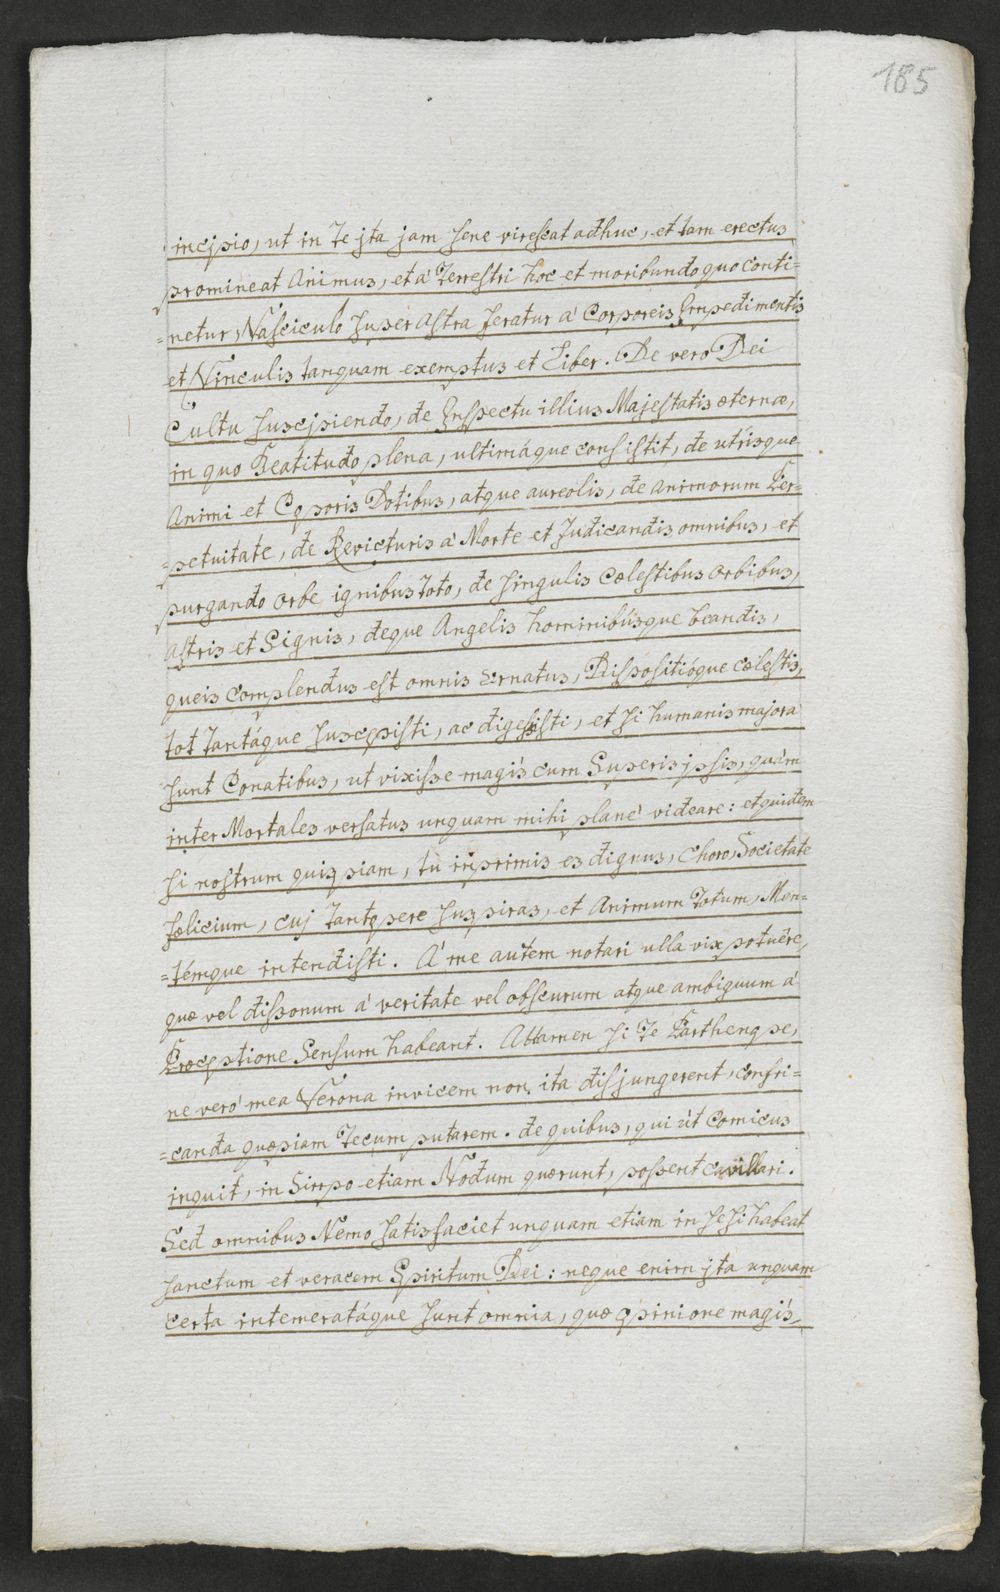 185
incipio, ut in Te jta jam sene virescat adhuc, et tam erectus
promineat Animus, et à Terrestri hoc et moribundo quo conti=
=netur, Vasciculo super Astra feratur à Corporeis Impedimentis
et Vinculis tanquam exemptus et Liber. De vero Dei
Cultu suscipiendo, de Inspectu illius Majestatis æternæ,
in quo Beatitudo plena, ultimáque consistit, de utrisque
Animi et Corporis Dotibus, atque aureolis, de Animorum Per=
=petuitate, de Revicturis à Morte et Judicandis omnibus, et
purgando orbe ignibus Toto, de singulis Cœlestibus orbibus,
Astris et Signis, deque Angelis hominibúsque beandis,
queis complendus est omnis Ornatus, Dispositióque cœlestis,
tot Tantáque suscepisti, ac digessisti, et si humanis majora
sunt Conatibus, ut vixisse magis cum Superis jpsis, quàm
inter Mortales versatus unquam mihi planè videare: etquidem
si nostrum quispiam, tu inprimis es dignus, Choro, Societate
fœlicium, cuj Tantopere suspiras, et Animum Totum, Men=
=témque intendisti. A' me autem notari ulla vix potuêre,
quæ vel dissonum à veritate vel obscurum atque ambiguum à
Præceptione Sensum habeant. Attamen si Te Parthenope,
ne verò mea Verona invicem non ita disjungerent, confri=
=canda quæpiam Tecum putarem. de quibus, qui ùt Comicus
inquit, in Sirpo etiam Nodum quærunt, possent cavillari.
Sed omnibus Nemo satisfaciet unquam etiam in se si habeat
sanctum et veracem Spiritum Dei: neque enim jta unquam
certa intemeratáque sunt omnia, quæ opinione magis